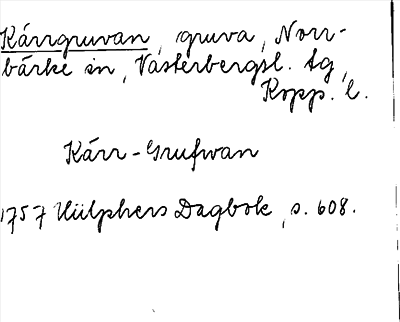 Kärrgruvan, gruva, Norr-
bärke sn, Västerbergsl. tg,
Kopp. l.
Kärr-Grufwan
1757 Hülphers Dagbok, s. 608.